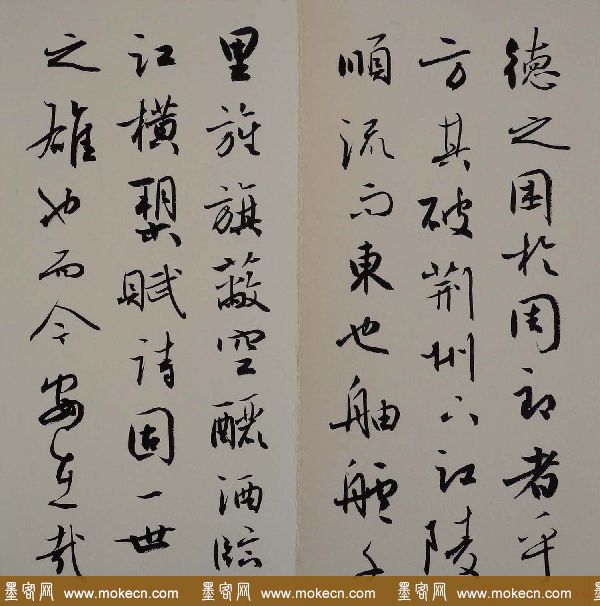 德之困於周郎者乎
方其破荆州下江陵
順流而東也舳艫千
里旌旗蔽空釃酒臨
江橫槊賦詩固一世
之雄也而今安在哉
墨客网 www.mokecn.com 墨客网 www.mokecn.com 墨客网 www.mokecn.com